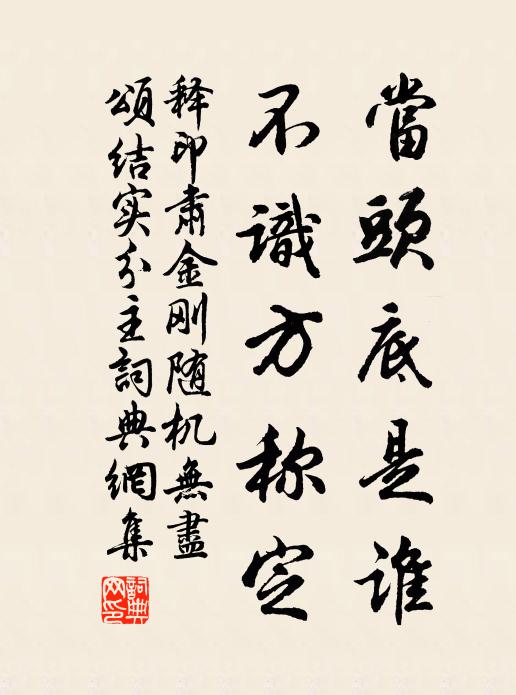 當頭底是誰
不識方称定
释印肃金刚随机無盡
頌结实分主詞典網集
詞典網印